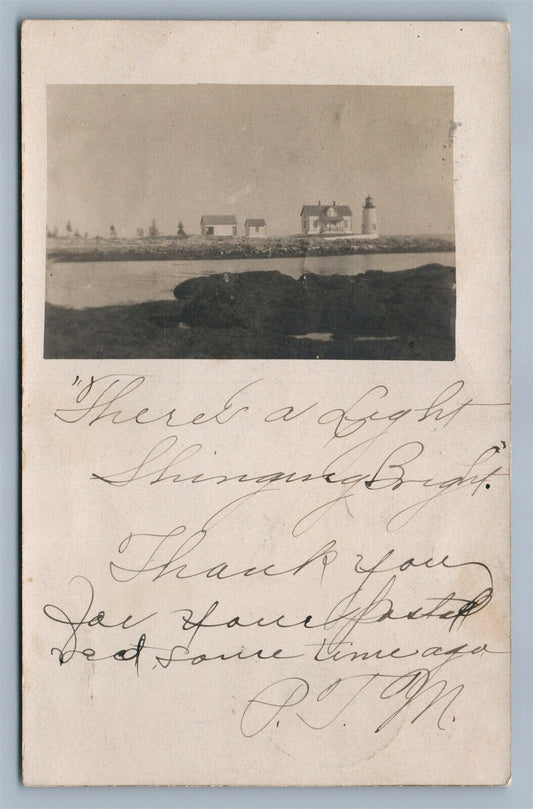 "There's a Light
Shinging Bright."
Thank you
for your Postal
recd some time ago
P. T. M.